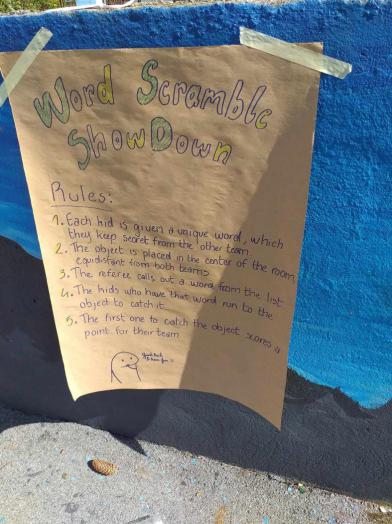 Word Scramble
ShowDown
Rules:
1. Each kid is given a unique word, which
they keep secret from the other team
2. The object is placed in the center of the room
equidistant from both teams
3. The referee calls out a word from the list
4. The kids who have that word run to the
object to catch it
5. The first one to catch the object scores a
point for their team
Good luck
& have fun :)